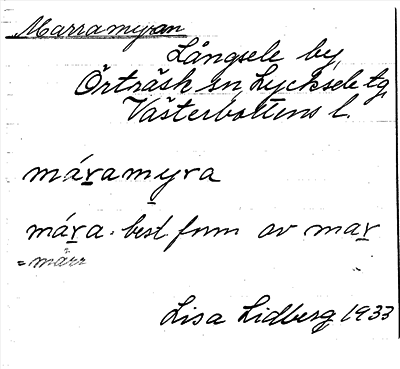 Marramyran
Långsele by,
Örträsk sn, Lycksele tg
Västerbottens l.
máramyra
mára. best. form av mar
= märr
Lisa Lidberg 1933